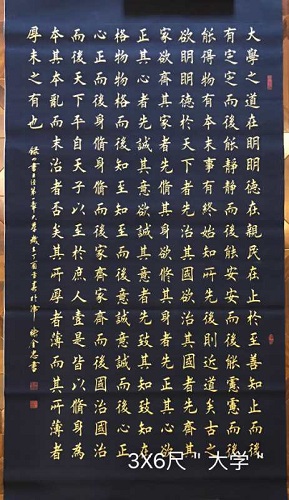 大學之道在明明德在親民在止於至善知止而後
有定定而後能靜靜而後能安安而後能慮慮而後
能得物有本末事有終始知所先後則近道矣古之
欲明明德於天下者先治其國欲治其國者先齊其
家欲齊其家者先脩其身欲脩其身者先正其心欲
正其心者先誠其意欲誠其意者先致其知致知在
格物物格而後知至知至而後意誠意誠而後心正
心正而後身脩身脩而後家齊家齊而後國治國治
而後天下平自天子以至於庶人壹是皆以脩身為
本其本亂而末治者否矣其所厚者薄而其所薄者
厚未之有也
3X6尺＂大学＂